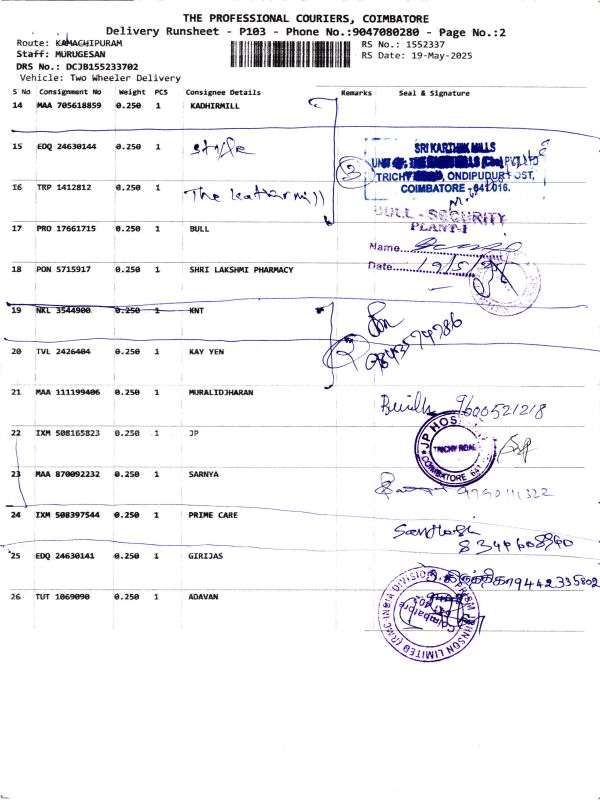 THE PROFESSIONAL COURIERS, COIMBATORE
Delivery Runsheet - P103 - Phone No.:9047080280 - Page No.:2
Route: KAMACHIPURAM
RS No.: 1552337
Staff: MURUGESAN
RS Date: 19-May-2025
DRS No.: DCJB155233702
Vehicle: Two Wheeler Delivery
S No Consignment No Weight PCS Consignee Details Remarks Seal & Signature
14 MAA 705618859 0.250 1 KADHIRMILL
15 EDQ 24630144 0.250 1
SRI KARTHIK MILLS
TRICHY ROAD, ONDIPUDUR POST,
COIMBATORE - 641 016.
16 TRP 1412812 0.250 1
BULL - SECURITY
PLANT-I
17 PRO 17661715 0.250 1 BULL
Name
Date 19/5/25
18 PON 5715917 0.250 1 SHRI LAKSHMI PHARMACY
19 NKL 3544900 0.250 1 KNT
9843574786
20 TVL 2426404 0.250 1 KAY YEN
21 MAA 111199406 0.250 1 MURALIDJHARAN
9600521218
22 IXM 508165823 0.250 1 JP
JP HOS
TRICHY ROAD
COIMBATORE 641
23 MAA 870092232 0.250 1 SARNYA
9790111322
24 IXM 508397544 0.250 1 PRIME CARE
Santhosh
8344608840
25 EDQ 24630141 0.250 1 GIRIJAS
9442335802
26 TUT 1069090 0.250 1 ADAVAN
JOHNSON LIMITED (RMC-INDIA DIVISION)
Coimbatore
641 402